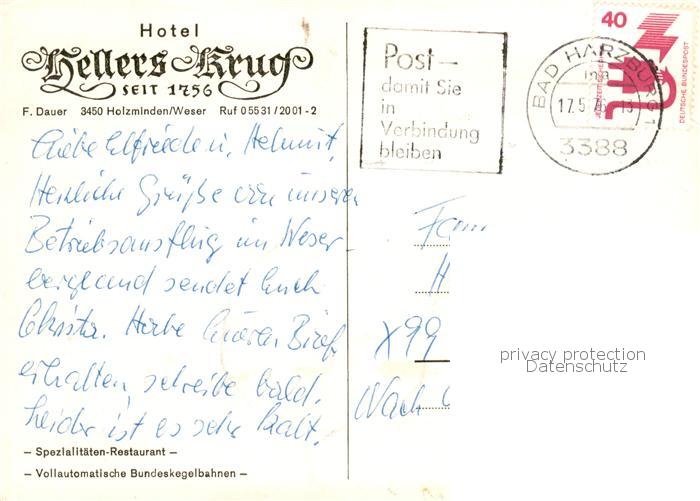 Hotel
Hellers-Krug
SEIT 1756
F. Dauer 3450 Holzminden/Weser Ruf 05531/2001-2
Liebe Elfriede u. Helmut,
Herzliche Grüße von unseren
Betriebsausflug im Weser
bergland sendet Euch
Christa. Habe Eueren Brief
erhalten, schreibe bald.
Leider ist es sehr kalt.
– Spezialitäten-Restaurant –
– Vollautomatische Bundeskegelbahnen –
Post –
damit Sie
in
Verbindung
bleiben
BAD HARZBURG 1
17.5.76
3388
40
DEUTSCHE BUNDESPOST
Fam
H
X99
Nach
privacy protection
Datenschutz